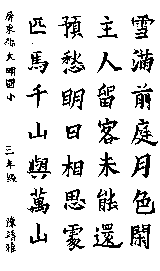 雪滿前庭月色閑
主人留客未能還
預愁明日相思處
匹馬千山與萬山
屏東大明國小 三年級 陳雅